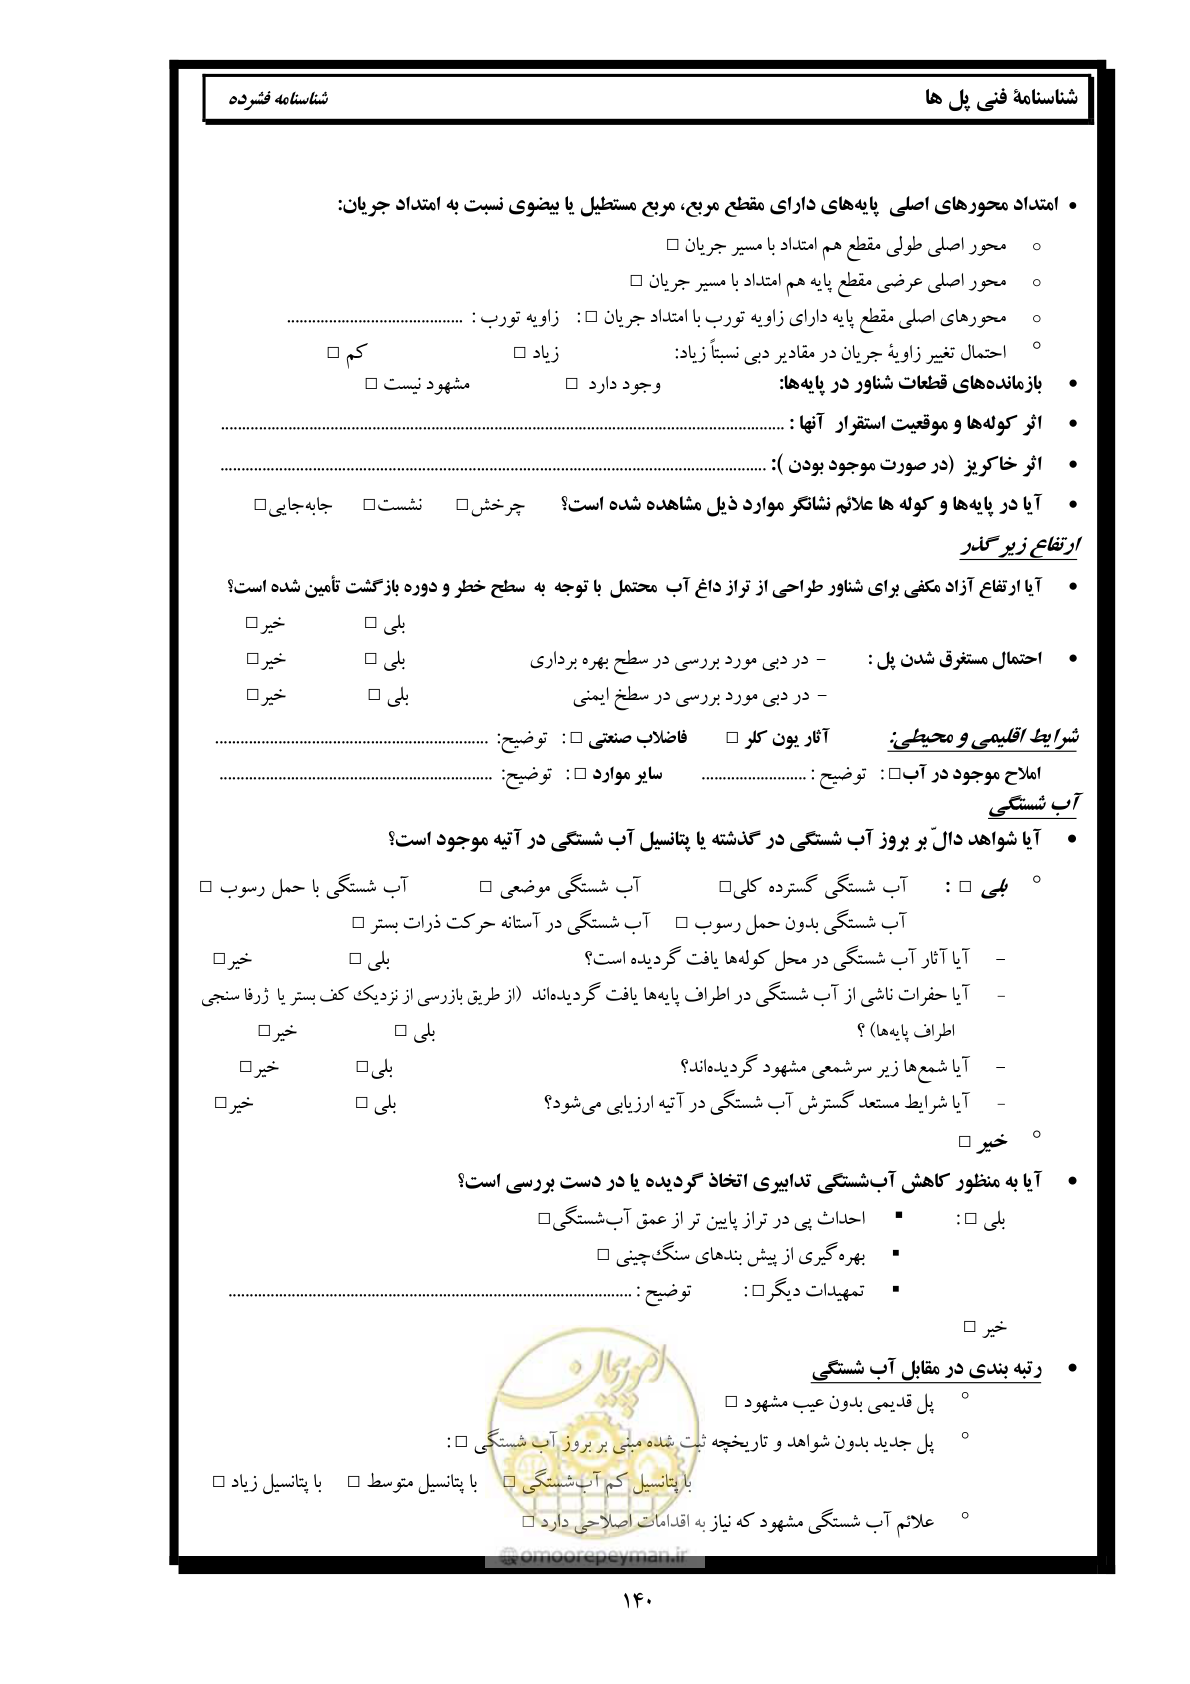 شناسنامهٔ فنی پل ها شناسنامه فشرده
• امتداد محورهای اصلی پایه‌های دارای مقطع مربع، مربع مستطیل یا بیضوی نسبت به امتداد جریان:
○ محور اصلی طولی مقطع هم امتداد با مسیر جریان □
○ محور اصلی عرضی مقطع پایه هم امتداد با مسیر جریان □
○ محورهای اصلی مقطع پایه دارای زاویه تورب با امتداد جریان □ : زاویه تورب : ..........................................
○ احتمال تغییر زاویهٔ جریان در مقادیر دبی نسبتاً زیاد: زیاد □ کم □
• بازمانده‌های قطعات شناور در پایه‌ها: وجود دارد □ مشهود نیست □
• اثر کوله‌ها و موقعیت استقرار آنها : ........................................................................................................................................
• اثر خاکریز (در صورت موجود بودن ): ....................................................................................................................................
• آیا در پایه‌ها و کوله ها علائم نشانگر موارد ذیل مشاهده شده است؟ چرخش□ نشست□ جابه‌جایی□
ارتفاع زیر گذر
• آیا ارتفاع آزاد مکفی برای شناور طراحی از تراز داغ آب محتمل با توجه به سطح خطر و دوره بازگشت تأمین شده است؟
بلی □ خیر□
• احتمال مستغرق شدن پل : – در دبی مورد بررسی در سطح بهره برداری بلی □ خیر□
– در دبی مورد بررسی در سطخ ایمنی بلی □ خیر□
شرایط اقلیمی و محیطی: آثار یون کلر □ فاضلاب صنعتی □ : توضیح: .................................................................
املاح موجود در آب□ : توضیح : ......................... سایر موارد □ : توضیح: .................................................................
آب شستگی
• آیا شواهد دالّ بر بروز آب شستگی در گذشته یا پتانسیل آب شستگی در آتیه موجود است؟
○ بلی □ : آب شستگی گسترده کلی□ آب شستگی موضعی □ آب شستگی با حمل رسوب □
آب شستگی بدون حمل رسوب □ آب شستگی در آستانه حرکت ذرات بستر □
– آیا آثار آب شستگی در محل کوله‌ها یافت گردیده است؟ بلی □ خیر□
– آیا حفرات ناشی از آب شستگی در اطراف پایه‌ها یافت گردیده‌اند (از طریق بازرسی از نزدیک کف بستر یا ژرفا سنجی
اطراف پایه‌ها) ؟ بلی □ خیر□
– آیا شمع‌ها زیر سرشمعی مشهود گردیده‌اند؟ بلی□ خیر□
– آیا شرایط مستعد گسترش آب شستگی در آتیه ارزیابی می‌شود؟ بلی □ خیر□
○ خیر □
• آیا به منظور کاهش آب‌شستگی تدابیری اتخاذ گردیده یا در دست بررسی است؟
بلی □ : ▪ احداث پی در تراز پایین تر از عمق آب‌شستگی□
▪ بهره‌گیری از پیش بندهای سنگ‌چینی □
▪ تمهیدات دیگر□ : توضیح : .................................................................................................
خیر □
• رتبه بندی در مقابل آب شستگی
○ پل قدیمی بدون عیب مشهود □
○ پل جدید بدون شواهد و تاریخچه ثبت شده مبنی بر بروز آب شستگی □ :
با پتانسیل کم آب‌شستگی □ با پتانسیل متوسط □ با پتانسیل زیاد □
○ علائم آب شستگی مشهود که نیاز به اقدامات اصلاحی دارد □
امور پیمان
@omoorepeyman.ir
۱۴۰